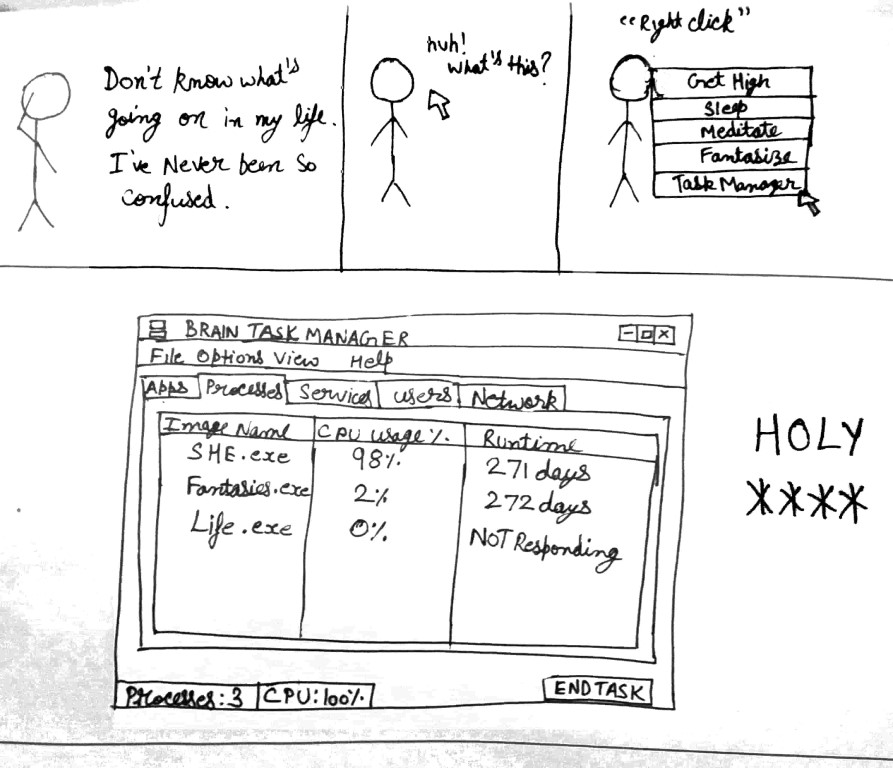 Don't know what's
going on in my life.
I've Never been so
confused.
huh!
what's this?
"Right click"
Get High
Sleep
Meditate
Fantasize
Task Manager
BRAIN TASK MANAGER
File Options View Help
Apps Processes Services Users Network
Image Name CPU usage % Runtime
SHE.exe 98% 271 days
Fantasies.exe 2% 272 days
Life.exe 0% NOT Responding
HOLY
****
Processes: 3 CPU: 100% END TASK